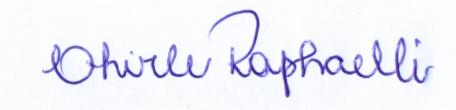 Shirle Raphaelli